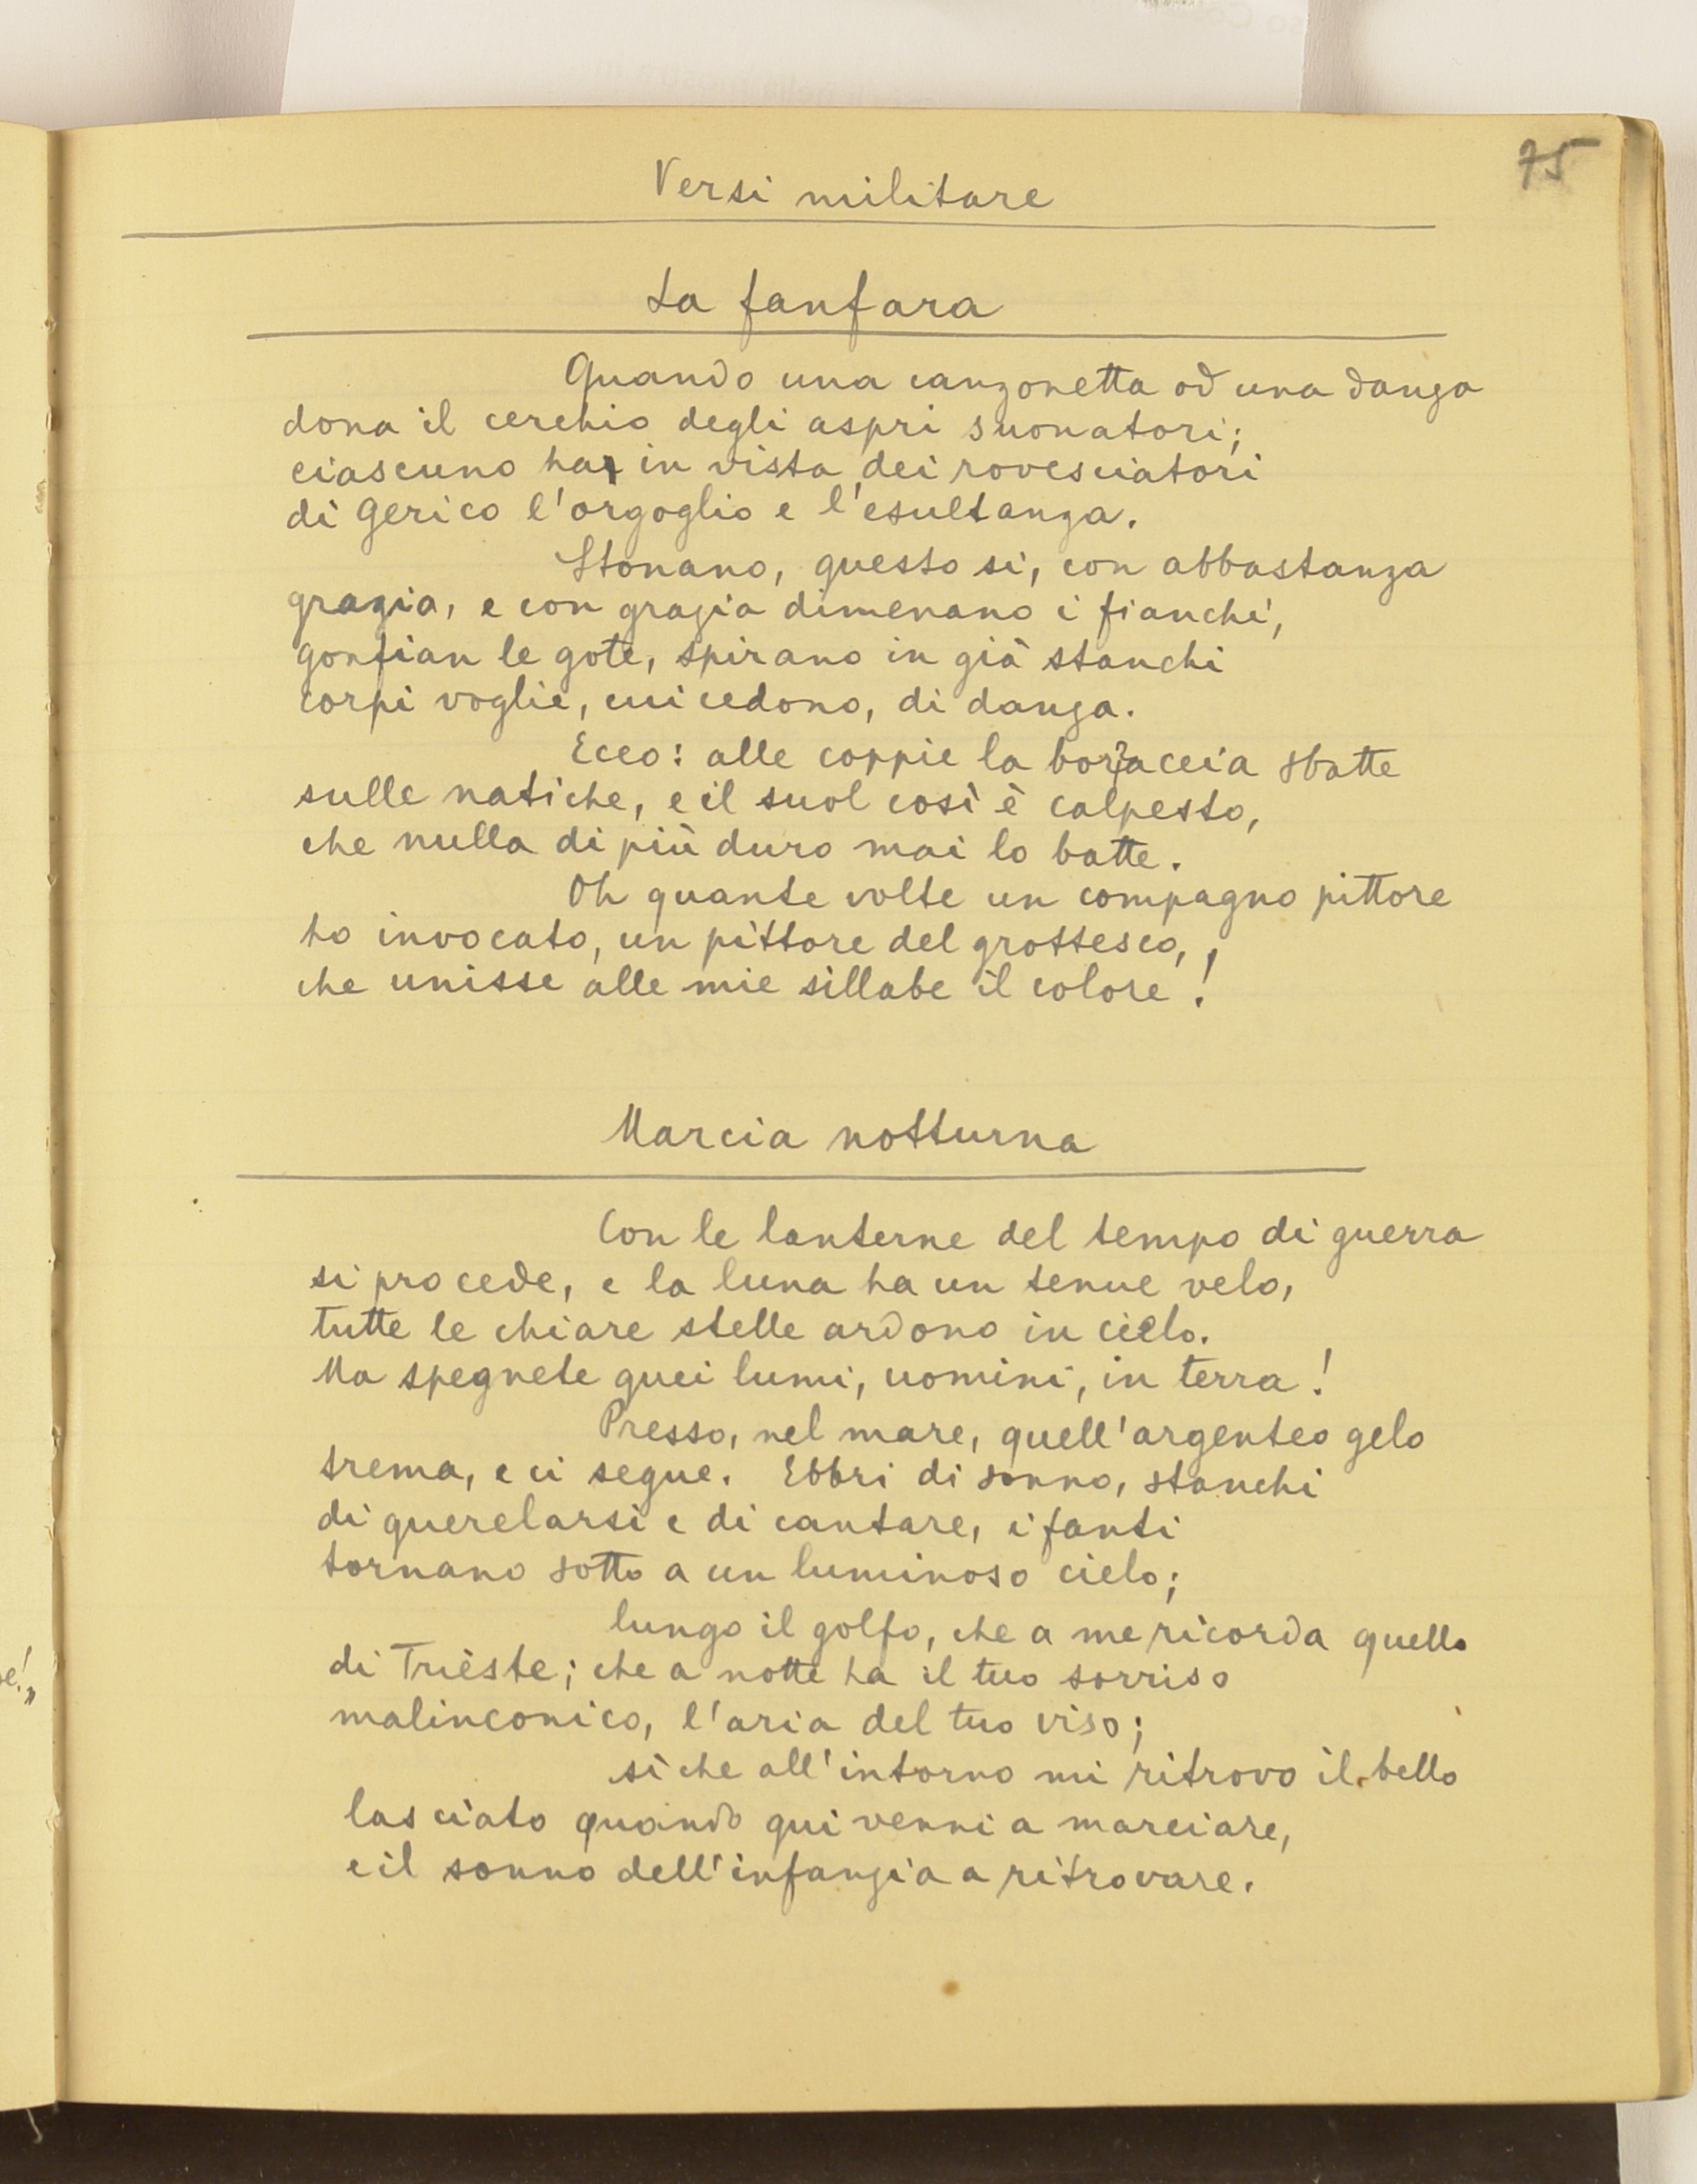 75
Versi militare
La fanfara
Quando una canzonetta od una danza
dona il cerchio degli aspri suonatori;
ciascuno ha, in vista, dei rovesciatori
di Gerico l'orgoglio e l'esultanza.
Stonano, questo si, con abbastanza
grazia, e con grazia dimenano i fianchi,
gonfian le gote, spirano in già stanchi
corpi voglie, cui cedono, di danza.
Ecco: alle coppie la borraccia sbatte
sulle natiche, e il suol così è calpesto,
che nulla di più duro mai lo batte.
Oh quante volte un compagno pittore
ho invocato, un pittore del grottesco,
che unisse alle mie sillabe il colore!
Marcia notturna
Con le lanterne del tempo di guerra
si procede, e la luna ha un tenue velo,
tutte le chiare stelle ardono in cielo.
Ma spegnete quei lumi, uomini, in terra!
Presso, nel mare, quell'argenteo gelo
trema, e ci segue. Ebbri di sonno, stanchi
di querelarsi e di cantare, i fanti
tornano sotto a un luminoso cielo;
lungo il golfo, che a me ricorda quello
di Trièste; che a notte ha il tuo sorriso
malinconico, l'aria del tuo viso;
sì che all'intorno mi ritrovo il bello
lasciato quando qui venni a marciare,
e il sonno dell'infanzia a ritrovare.